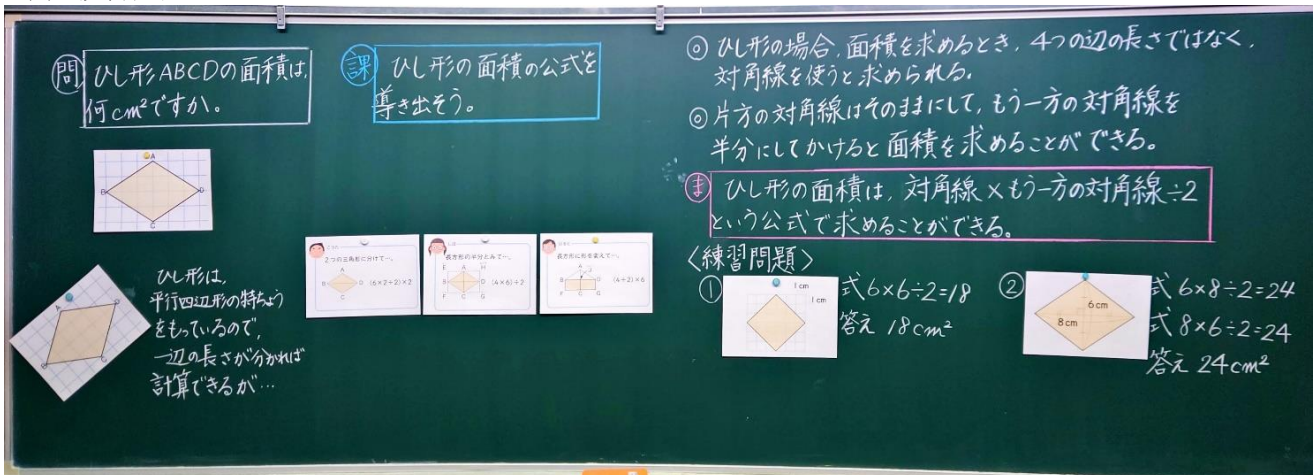 問 ひし形ABCDの面積は、
何cm²ですか。
A
B
D
C
ひし形は、
平行四辺形の特ちょう
をもっているので、
一辺の長さが分かれば
計算できるが…
A
D
B
C
課 ひし形の面積の公式を
導き出そう。
2つの三角形に分けて…。
A
B
D
C
(6×2÷2)×2
長方形の半分とみて…。
E A H
B D
F C G
(4×6)÷2
長方形に形を変えて…。
A
B D
F C G
(4÷2)×6
◎ ひし形の場合、面積を求めるとき、4つの辺の長さではなく、
対角線を使うと求められる。
◎ 片方の対角線はそのままにして、もう一方の対角線を
半分にしてかけると面積を求めることができる。
ま ひし形の面積は、対角線×もう一方の対角線÷2
という公式で求めることができる。
〈練習問題〉
①
1cm
1cm
式6×6÷2=18
答え 18cm²
②
6cm
8cm
式 6×8÷2=24
式 8×6÷2=24
答え 24cm²